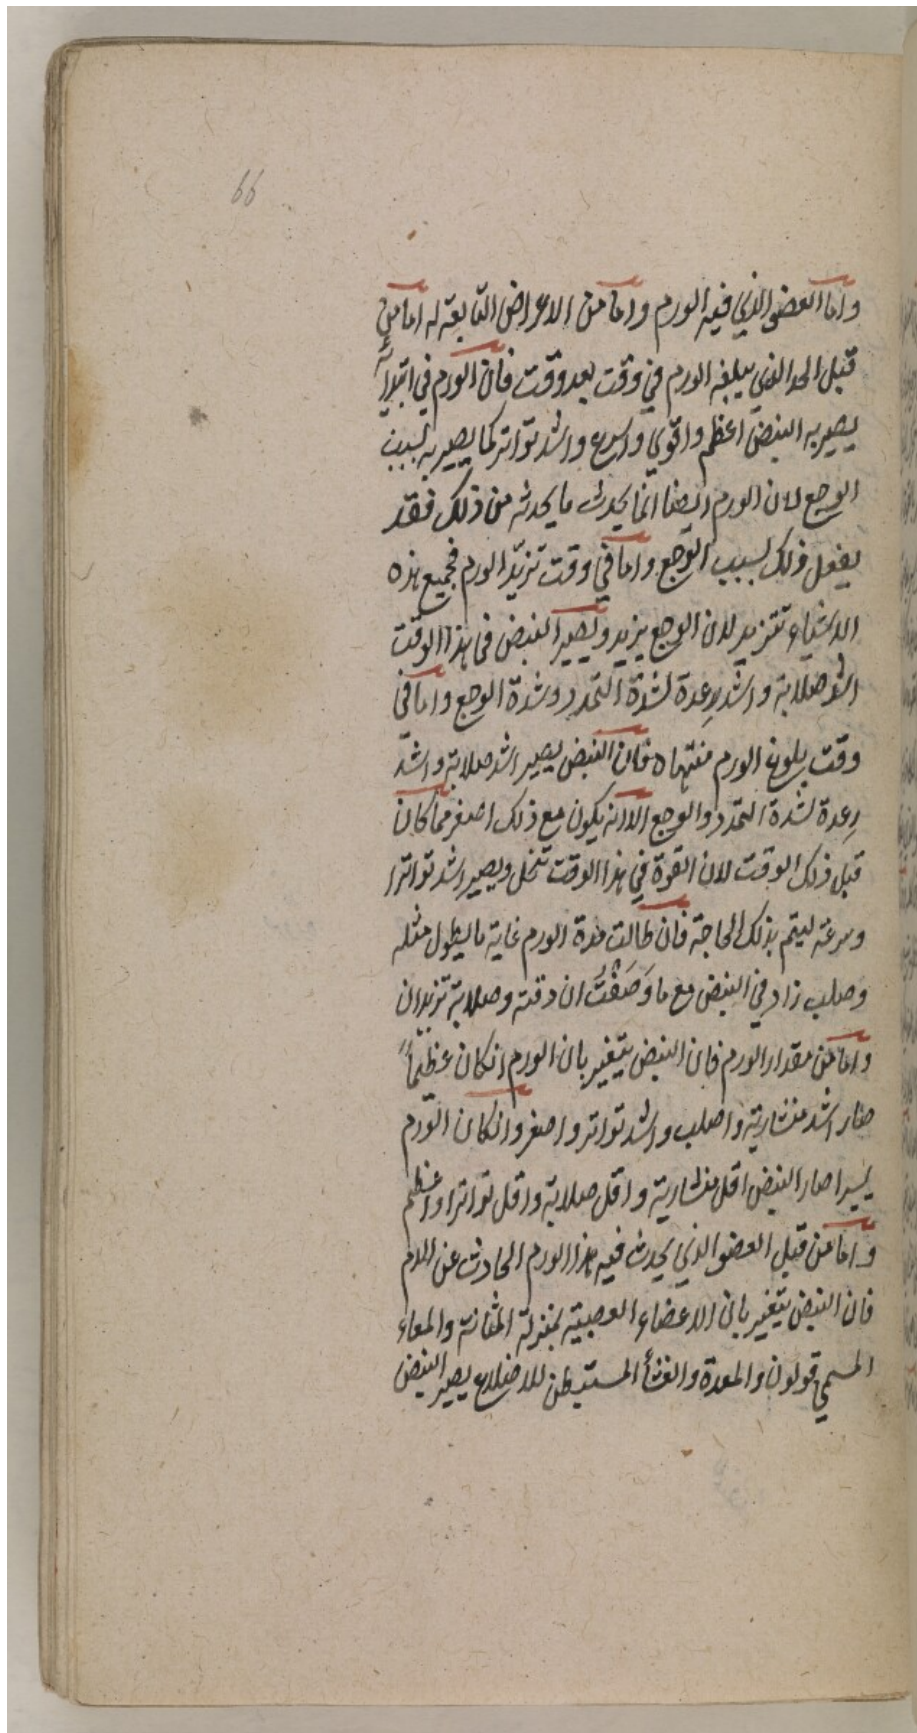 66
واما العضو الذي فيه الورم واما من الاعراض التابعة له اما من
قبل الحد الذي يبلغه الورم في وقت بعد وقت فان الورم في ابتدائه
يصير به النبض اعظم واقوى واسرع واشد تواتر كما يصير به لسبب
الوجع لان الورم ايضا انما يحدث ما يحدثه من ذلك فقد
يفعل ذلك لسبب الوجع واما في وقت تزيد الورم فجميع هذه
الاشياء تتزيد لان الوجع يزيد ويصير النبض في هذا الوقت
اشد صلابة واشد رعدة لشدة التمدد وشدة الوجع واما في
وقت بلوغ الورم منتهاه فان النبض يصير اشد صلابة واشد
رعدة لشدة التمدد والوجع الا انه يكون مع ذلك اصغر مما كان
قبل ذلك الوقت لان القوة في هذا الوقت تنحل ويصير اشد تواترا
وسرعة ليتم بذلك الحاجة فان طالت مدة الورم غاية ما يطول مثله
وصلب زاد في النبض مع ما وَصَفْتُ ان دقته وصلابة تزيدان
واما من مقدار الورم فان النبض يتغير بان الورم انكان عظيماً
صار اشد منشارية واصلب واشد تواتر واصغر وانكان الورم
يسيرا صار النبض اقل منشارية واقل صلابة واقل تواترا واعظم
واما من قبل العضو الذي يحدث فيه هذا الورم الحادث عن الدم
فان النبض يتغير بان الاعضاء العصبية بمنزلة المثانة والمعاء
المسمي قولون والمعدة والغشأ المستبطن للاضلاع يصير النبض